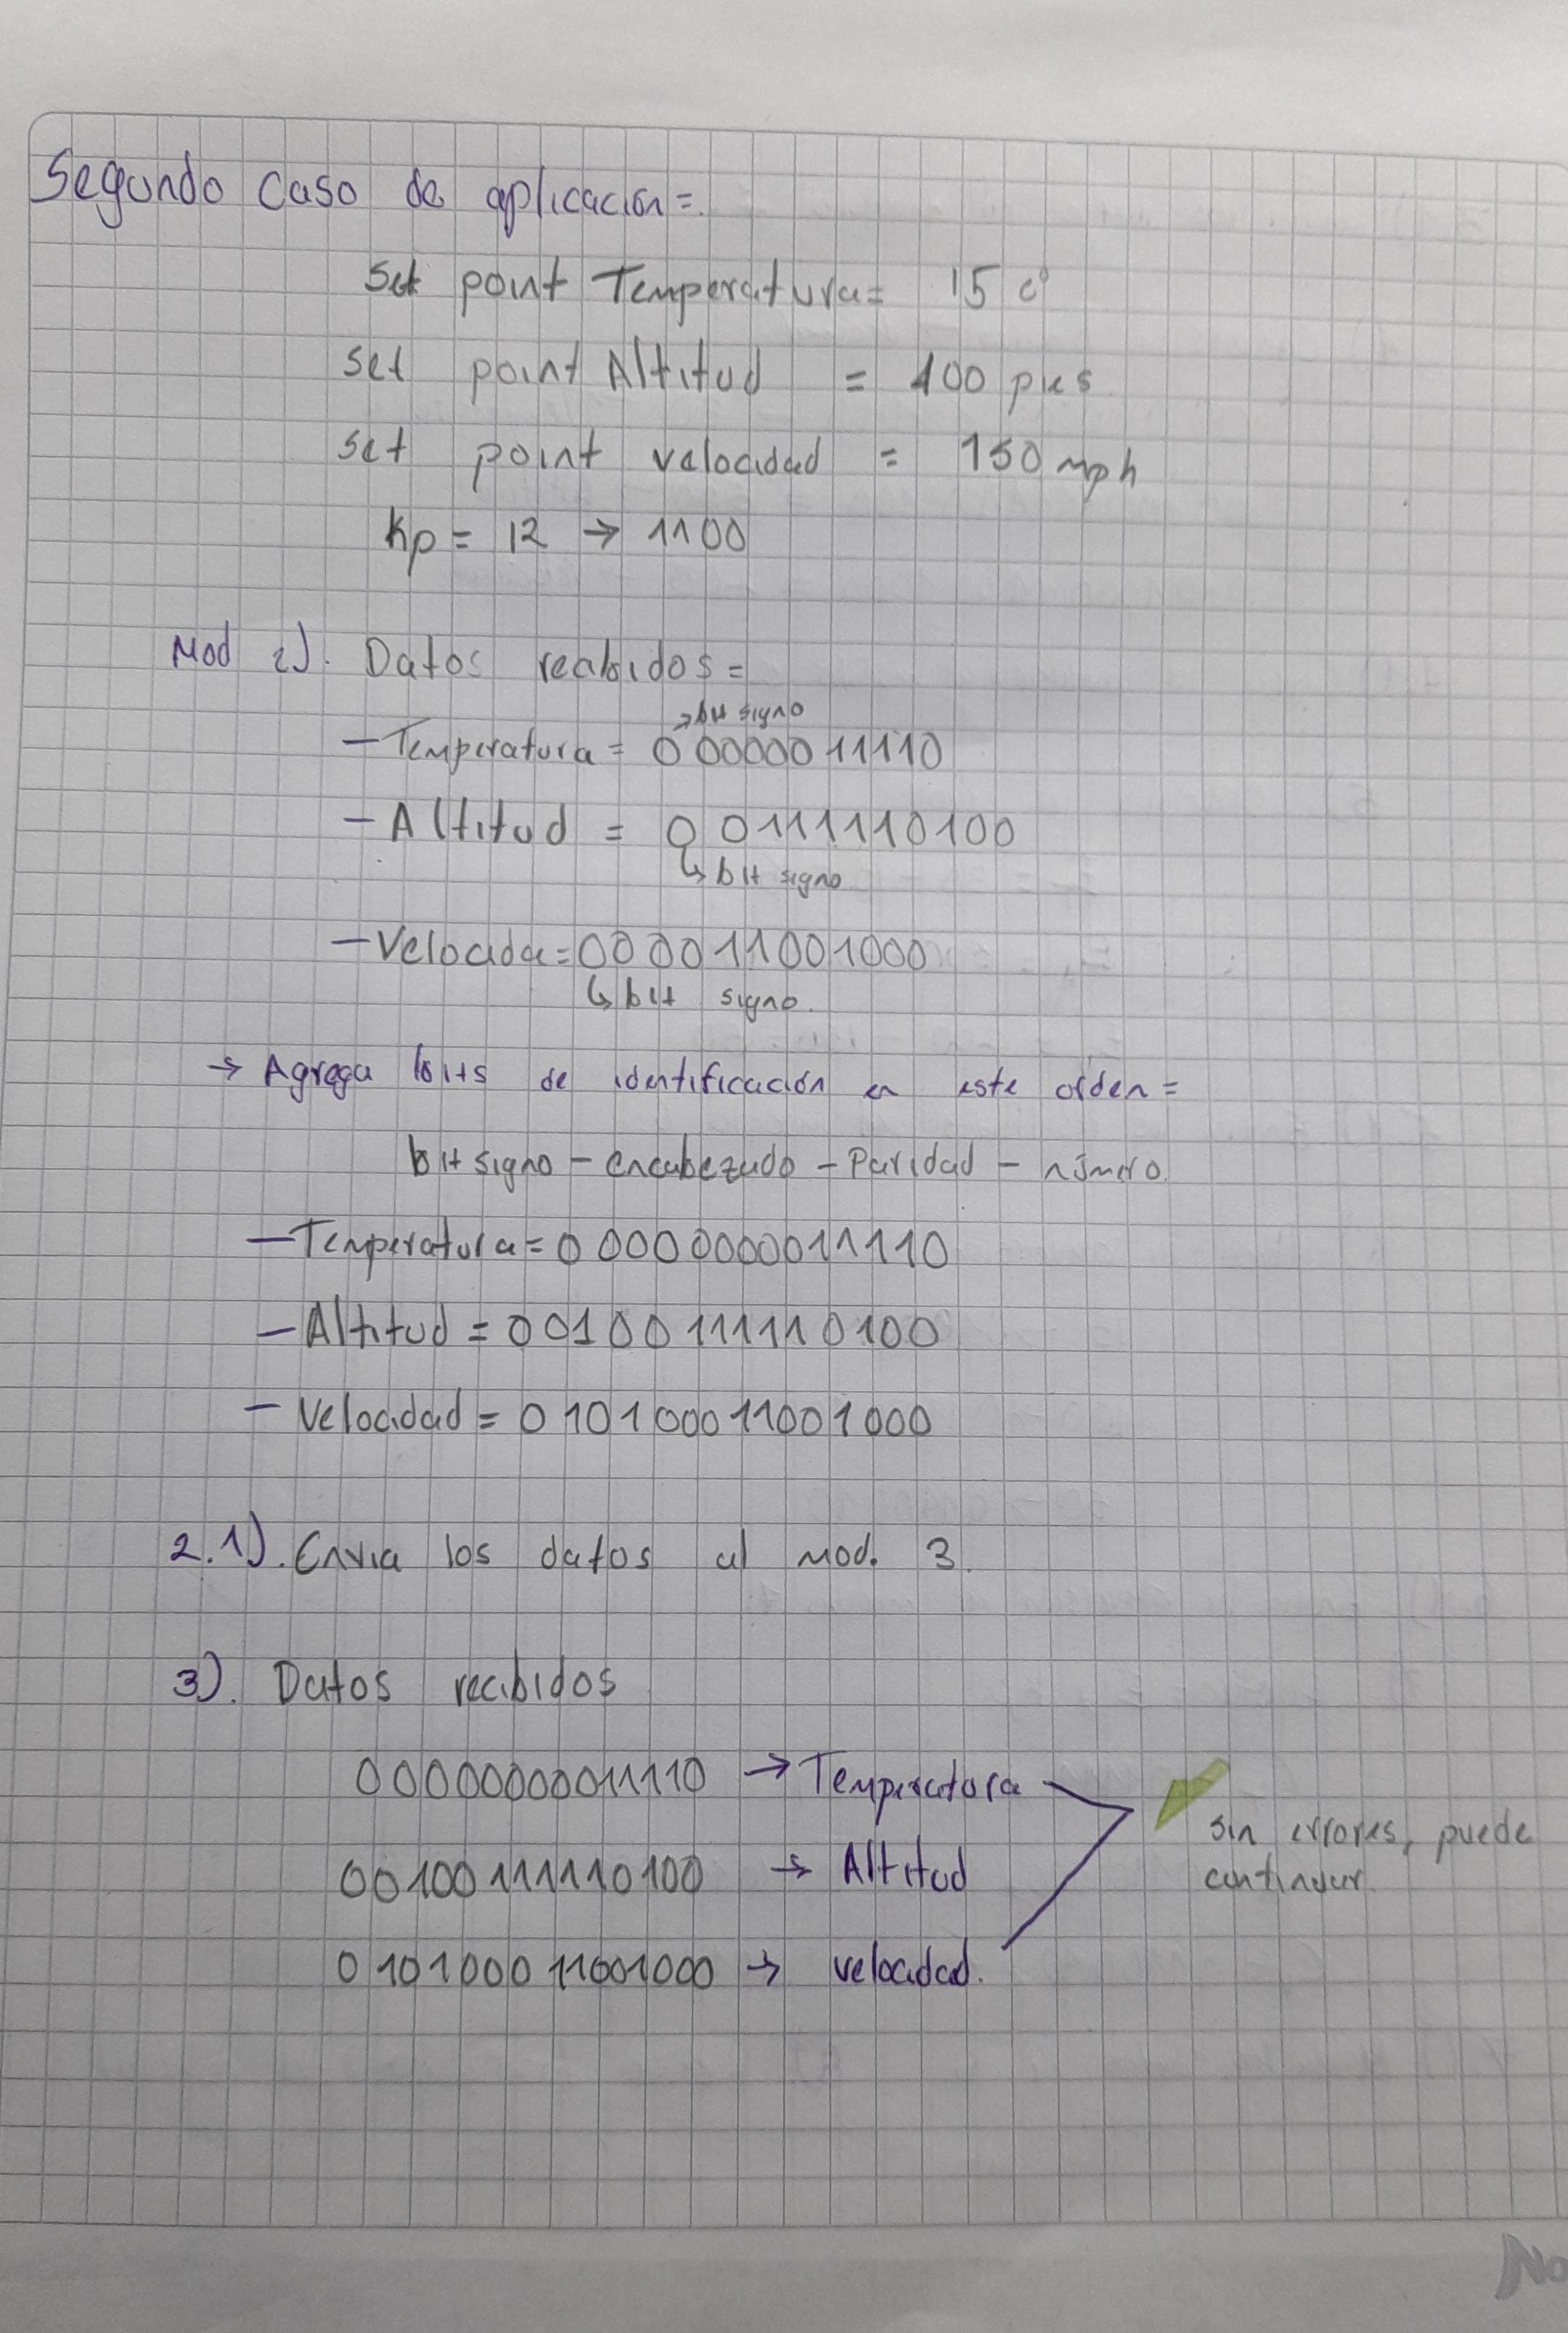 Segundo Caso de aplicación=.
Set point Temperatura= 15 c°
set point Altitud = 100 pies
set point velocidad = 150 mph
Kp = 12 → 1100
Mod 2). Datos recibidos=
→bit signo
- Temperatura = 0 00000 11110
- Altitud = 0 0111110100
↳ bit signo
- Velocida = 0000 11001000
↳ bit signo.
→ Agrega bits de identificación en este orden =
bit signo - encabezado - Paridad - número.
- Temperatura = 0 0000000011110
- Altitud = 00100 111110100
- Velocidad = 0 101 000 11001000
2.1). Envia los datos al Mod. 3.
3). Datos recibidos
00000000011110 → Temperatura
00100 111110100 → Altitud
sin errores, puede
continuar.
0 101000 11001000 → velocidad.
No